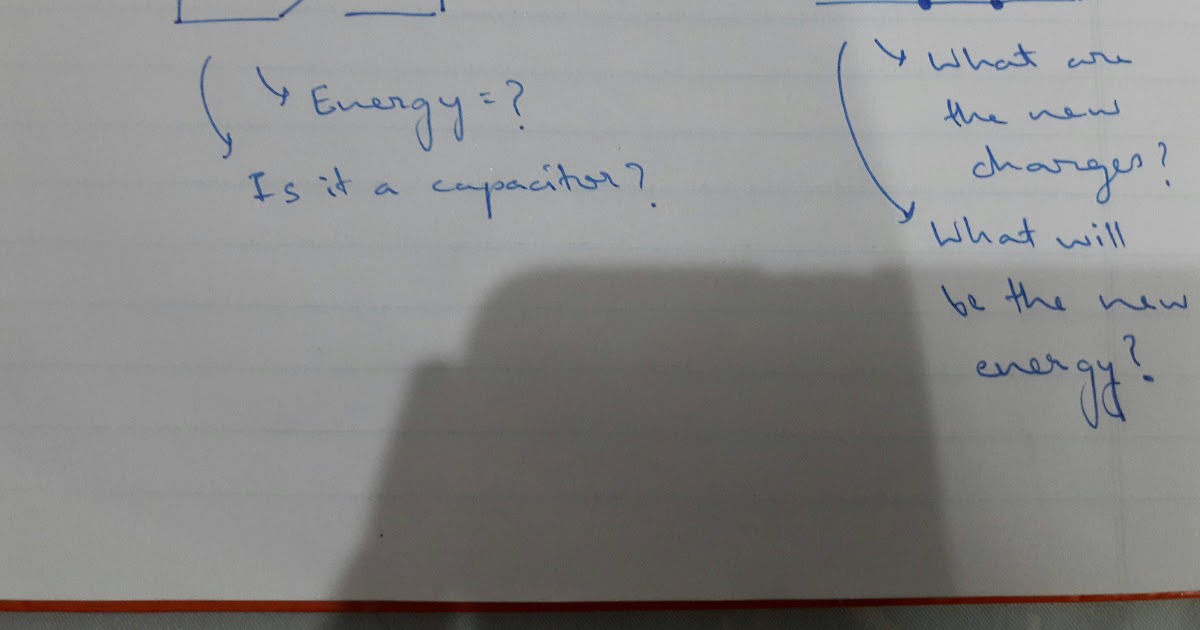 Energy = ?
Is it a capacitor?
What are
the new
charges?
What will
be the new
energy?